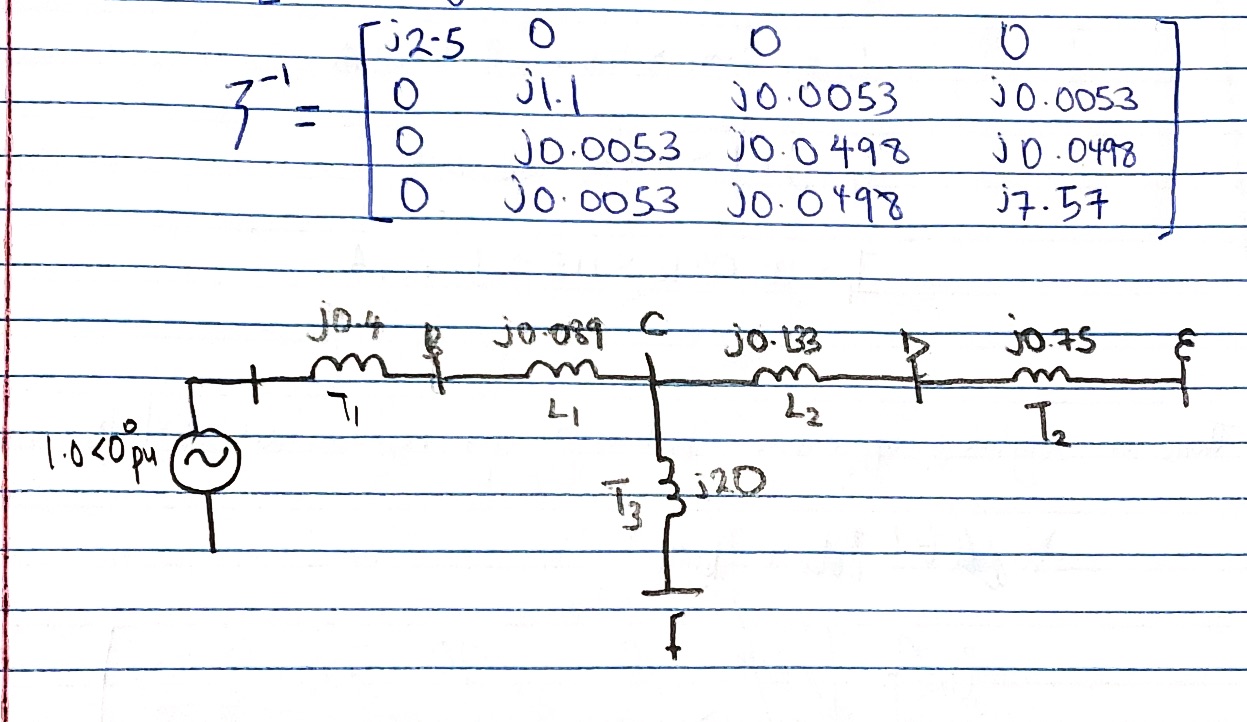 j2.5 0 0 0
0 j1.1 j0.0053 j0.0053
Z⁻¹ =
0 j0.0053 j0.0498 j0.0498
0 j0.0053 j0.0498 j7.57
j0.4 B j0.089 C j0.133 D j0.75 E
T1 L1 L2 T2
1.0<0° pu
T3 j20
f